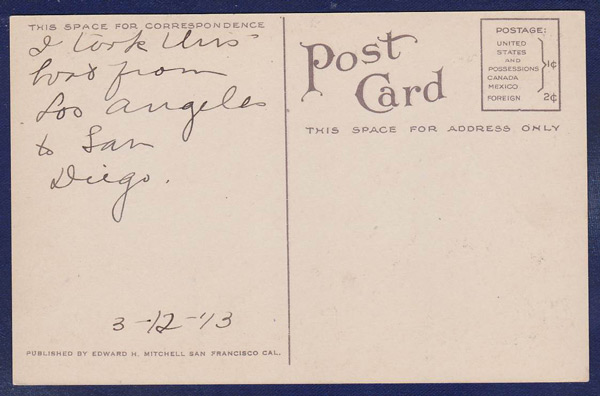 THIS SPACE FOR CORRESPONDENCE
I took this
boat from
Los Angeles
to San
Diego.
3-12-13
PUBLISHED BY EDWARD H. MITCHELL SAN FRANCISCO CAL.
Post
Card
THIS SPACE FOR ADDRESS ONLY
POSTAGE:
UNITED
STATES
AND
POSSESSIONS 1¢
CANADA
MEXICO
FOREIGN 2¢